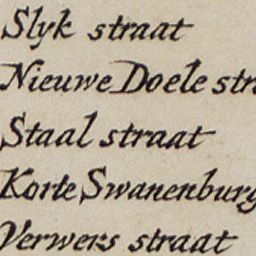 Slyk straat
Nieuwe Doele str
Staal straat
Korte Swanenburg
Verwers straat